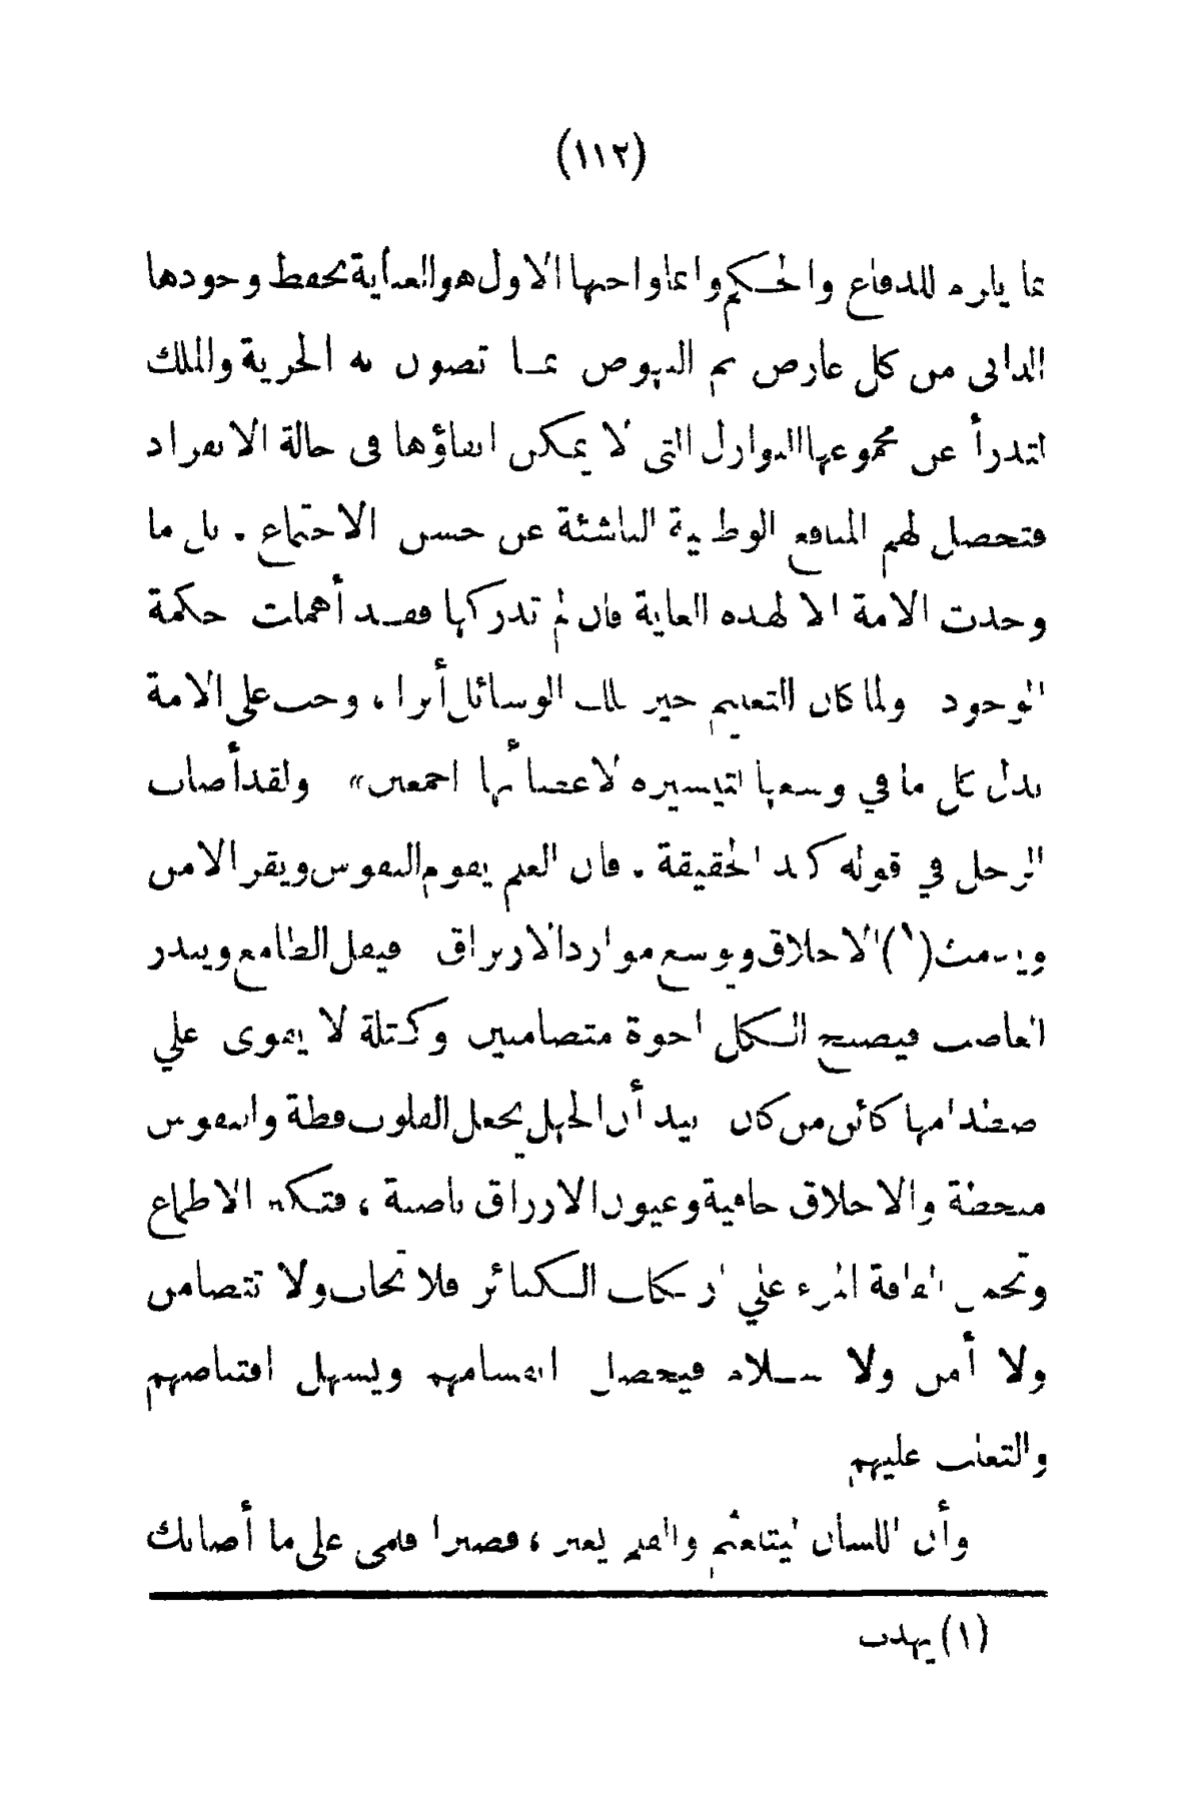 (١١٢)
بما يلزم للدفاع والحكم وانما واجبها الاول هو العناية بحفظ وجودها
الذاتى من كل عارض ثم النهوض بمـا تصون به الحرية والملك
لتدرأ عن مجموعها النوازل التى لا يمكن اتقاؤها فى حالة الانفراد
فتحصل لهم المنافع الوطنية الناشئة عن حسن الاجتماع . بل ما
وجدت الامة الا لهذه الغاية فان لم تدركها فقـد أهملت حكمة
الوجود ولما كان التعليم خير تلك الوسائل أثرا ، وجب على الامة
بذل كل ما في وسعها لتيسيره لاعضائها اجمعين» ولقد أصاب
الرجل في قوله كبد الحقيقة . فان العلم يقوم النفوس ويقر الامن
ويدمث (١) الاخلاق ويوسع موارد الارتزاق فيقل الطامع ويندر
الغاصب فيصبح الـكل اخوة متضامنين وكـتلة لا يقوى علي
ضغذامها كائن من كان بيد أن الجهل يجعل القلوب فظة والنفوس
منحطة والاخلاق جافية وعيون الارزاق ناضبة ، فتـكثر الاطماع
وتحمل الفاقة المرء علي ارتـكاب الـكبائر فلا تحاب ولا تتضامن
ولا أمن ولا سـلام فيحصل انقسامهم ويسهل اقتناصهم
والتغلب عليهم
وأن اللسان ليتلعثم والقلم يعثر ، فصبرا قلمى على ما أصابك
(١) يهذب